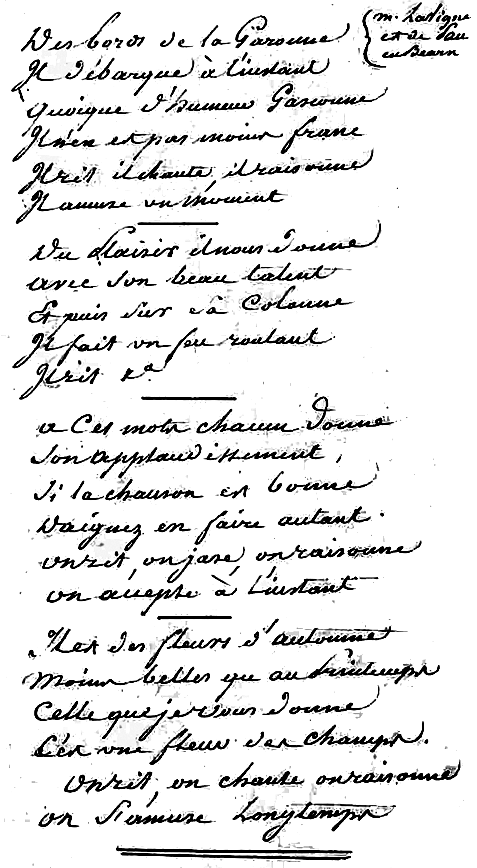 Des bords de la Garonne
m. Lasigne
et de Pau
en Bearn
Il débarque à l'instant
Quoique d'humeur Gasconne
Il n'en est pas moins franc
Il rit il chante, il raisonne
Il amuse un moment
Du Plaisir il nous donne
avec son beau talent
Et puis sur sa Colonne
Il fait un feu roulant
Il rit &a
a Ces mots chacun donne
Son applaudissement,
Si la chanson est bonne
Daignez en faire autant.
on rit, on jase, on raisonne
on accepte à l'instant
Il est des fleurs d'automne
Moins belles qu au Printemps
Celle que je vous donne
C'est une fleur des champs.
on rit, on chante on raisonne
on s'amuse Longtemps